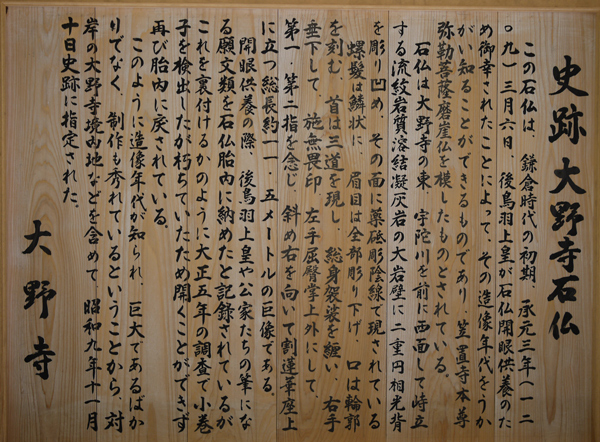 史跡大野寺石仏
この石仏は、鎌倉時代の初期、承元三年(一二
〇九)三月六日、後鳥羽上皇が石仏開眼供養のた
め御幸されたことによって、その造像年代をうか
がい知ることができるものであり、笠置寺本尊
弥勒菩薩磨崖仏を模したものとされている。
石仏は大野寺の東、宇陀川を前に西面して峙立
する流紋岩質溶結凝灰岩の大岩壁に二重円相光背
を彫り凹め、その面に薬研彫陰線で現されている
螺髪は鱗状に、眉目は全部彫り下げ、口は輪郭
を刻む。首は三道を現し、総身袈裟を纏い、右手
垂下して、施無畏印、左手屈臂掌上外にして、
第一・第二指を念じ、斜め右を向いて割蓮華座上
に立つ総長約一一・五メートルの巨像である。
開眼供養の際、後鳥羽上皇や公家たちの筆にな
る願文類を石仏胎内に納めたと記録されているが
これを裏付けるかのように大正五年の調査で小巻
子を検出したが朽ちていたため開くことができず
再び胎内に戻されている。
このように造像年代が知られ、巨大であるばか
りでなく、制作も秀れているということから、対
岸の大野寺境内地などを含めて、昭和九年十一月
十日史跡に指定された。
大野寺